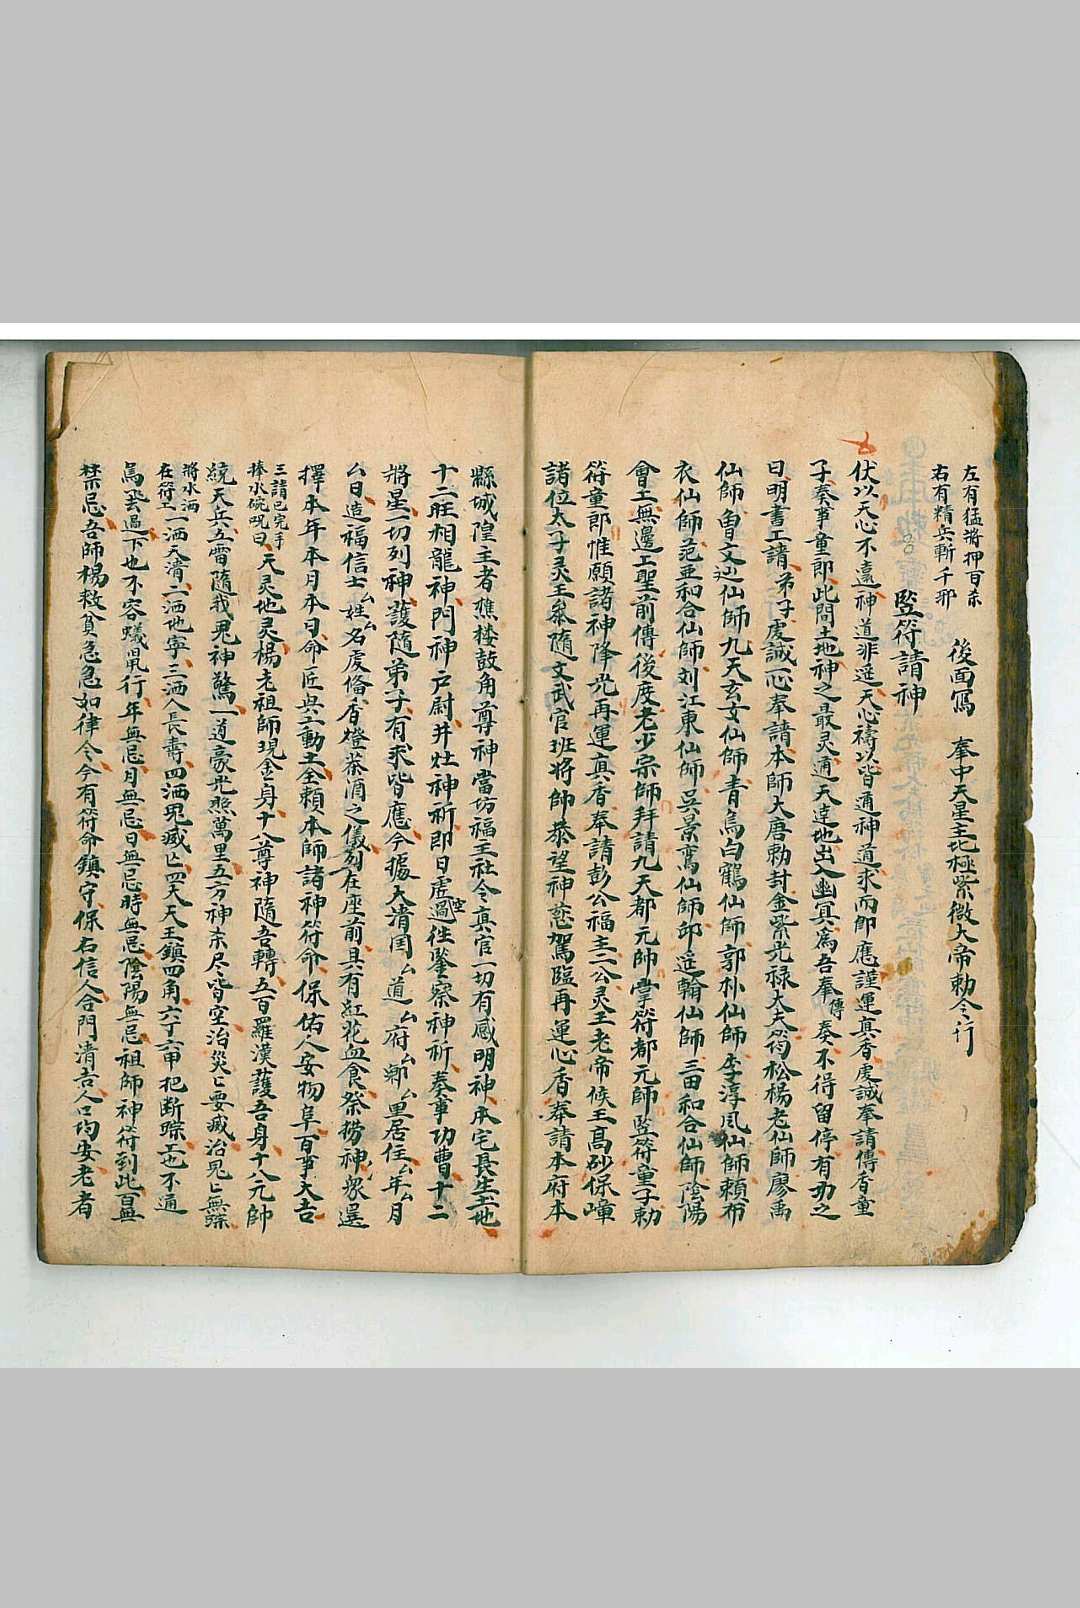 左有猛將押百杀
右有精兵斬千邪
後面寫　奉中天星主北極紫微大帝勅令行
豎符請神
伏以天心不遠神道非遥天心禱以皆通神道求而即應謹運真香虔誠奉請傳香童
子奏事童郎此間土地神之最灵通天達地出入幽冥為吾奉傳奏不得留停有功之
日明書上請弟子虔誠一心奉請本師大唐勅封金紫光禄大夫筠松楊老仙師廖禹
仙師曾文辿仙師九天玄女仙師青烏白鶴仙師郭朴仙師李淳風仙師賴布
衣仙師范亜和合仙師刘江東仙師吳景鸞仙師邱延翰仙師三田和合仙師陰陽
會上無邊上聖前傳後度老少宗師拜請九天都元帥掌符都元帥豎符童子勅
符童郎惟願諸神降光再運真香奉請彭公福主三公灵王老帝候王髙砂保嶂
諸位太子灵王叅隨文武官班將帥恭望神慈駕臨再運心香奉請本府本
縣城隍主者樵楼鼓角尊神當坊福主社令真官一切有感明神本宅長生土地
十二旺相龍神門神户尉井灶神祈即日虚空過往鑒察神祈奏事功曹十二
將星一切列神護隨弟子有求皆應今據大清国厶道厶府厶鄉厶里居住厶年厶月
厶日造福信士厶姓厶名虔備香燈茶酒之儀列在座前具有紅花血食祭撈神衆選
擇本年本月本日命匠興工動土全賴本師諸神符命保佑人安物阜百事大吉
三請已完手
捧水碗咒曰
天灵地灵楊老祖師現金身十八尊神隨吾轉五百羅漢護吾身十八元帥
統天兵五雷隨我鬼神驚一道豪光照萬里五方神杀尽皆空治災匕要滅治鬼匕無踪
將水洒
在符上
一洒天清二洒地寧三洒人長壽四洒鬼滅亡四大天王鎮四角六丁六甲把断踪上也不通
鳥飛過下也不容蟻鼠行年無忌月無忌日無忌時無忌陰陽無忌祖師神符到此百無
禁忌吾師楊救貧急急如律令今有符命鎮守保右信人合門清吉人口均安老者